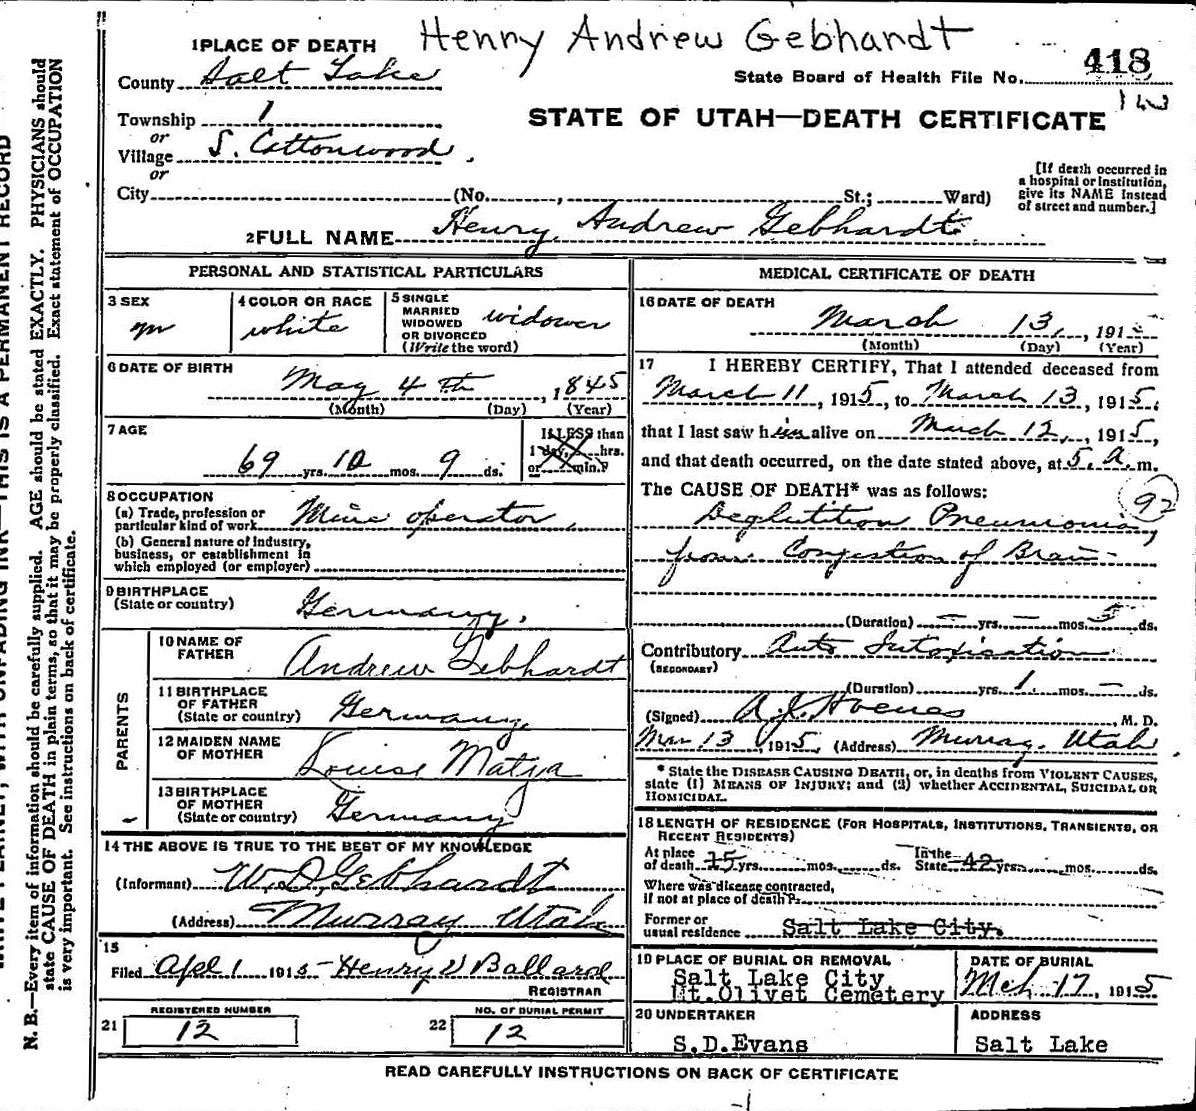 Henry Andrew Gebhardt
1 PLACE OF DEATH
418
County Salt Lake
State Board of Health File No.
Township 1
STATE OF UTAH—DEATH CERTIFICATE
or
Village S. Cottonwood
or
City (No. , St.; Ward)
[If death occurred in
a hospital or institution,
give its NAME instead
of street and number.]
2 FULL NAME Henry Andrew Gebhardt
PERSONAL AND STATISTICAL PARTICULARS
3 SEX
m
4 COLOR OR RACE
white
5 SINGLE
MARRIED
WIDOWED
OR DIVORCED
(Write the word)
widower
6 DATE OF BIRTH
May 4th, 1845
(Month) (Day) (Year)
7 AGE
69 yrs. 10 mos. 9 ds.
If LESS than
1 day, hrs.
or min.?
8 OCCUPATION
(a) Trade, profession or
particular kind of work Mine operator
(b) General nature of industry,
business, or establishment in
which employed (or employer)
9 BIRTHPLACE
(State or country) Germany.
PARENTS
10 NAME OF
FATHER Andrew Gebhardt
11 BIRTHPLACE
OF FATHER
(State or country) Germany,
12 MAIDEN NAME
OF MOTHER Louise Matya
13 BIRTHPLACE
OF MOTHER
(State or country) Germany
14 THE ABOVE IS TRUE TO THE BEST OF MY KNOWLEDGE
(Informant) W. D. Gebhardt
(Address) Murray Utah
15
Filed Apl 1 1915 Henry V Ballard
REGISTRAR
21 REGISTERED NUMBER
12
22 NO. OF BURIAL PERMIT
12
MEDICAL CERTIFICATE OF DEATH
16 DATE OF DEATH
March 13, 191
(Month) (Day) (Year)
17 I HEREBY CERTIFY, That I attended deceased from
March 11, 1915, to March 13, 1915,
that I last saw him alive on March 12, 1915,
and that death occurred, on the date stated above, at 5. a. m.
The CAUSE OF DEATH* was as follows:
92
Deglutition Pneumonia,
from Congestion of Brain
(Duration) — yrs. — mos. 5 ds.
Contributory Auto Intoxication
(SECONDARY)
(Duration) yrs. 1. mos. — ds.
(Signed) A. J. Hoenes, M. D.
Mar 13, 1915, (Address) Murray, Utah
* State the DISEASE CAUSING DEATH, or, in deaths from VIOLENT CAUSES,
state (1) MEANS OF INJURY; and (2) whether ACCIDENTAL, SUICIDAL OR
HOMICIDAL.
18 LENGTH OF RESIDENCE (FOR HOSPITALS, INSTITUTIONS, TRANSIENTS, OR
RECENT RESIDENTS)
At place
of death 15 yrs. mos. ds. In the
State 42 yrs. mos. ds.
Where was disease contracted,
If not at place of death?
Former or
usual residence Salt Lake City.
19 PLACE OF BURIAL OR REMOVAL
Salt Lake City
Mt. Olivet Cemetery
DATE OF BURIAL
Mch 17, 1915
20 UNDERTAKER
S.D.Evans
ADDRESS
Salt Lake
READ CAREFULLY INSTRUCTIONS ON BACK OF CERTIFICATE
N. B.—Every item of information should be carefully supplied. AGE should be stated EXACTLY. PHYSICIANS should
state CAUSE OF DEATH in plain terms, so that it may be properly classified. Exact statement of OCCUPATION
is very important. See instructions on back of certificate.